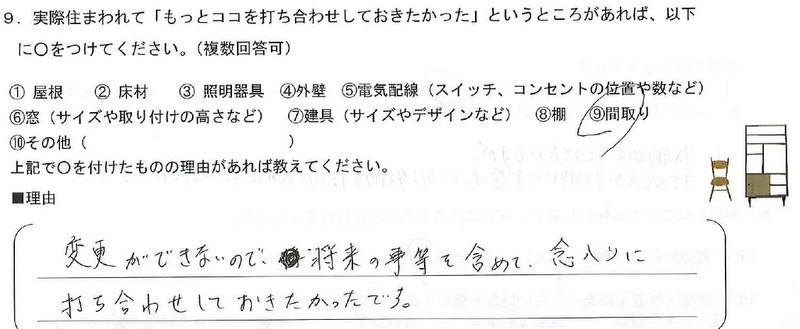 9．実際住まわれて「もっとココを打ち合わせしておきたかった」というところがあれば、以下
に○をつけてください。（複数回答可）
① 屋根　② 床材　③ 照明器具　④外壁　⑤電気配線（スイッチ、コンセントの位置や数など）
⑥窓（サイズや取り付けの高さなど）　⑦建具（サイズやデザインなど）　⑧棚　⑨間取り
⑩その他（　　　　　　　　　　　　）
上記で○を付けたものの理由があれば教えてください。
■理由
変更ができないので、将来の事等を含めて、念入りに
打ち合わせしておきたかったです。